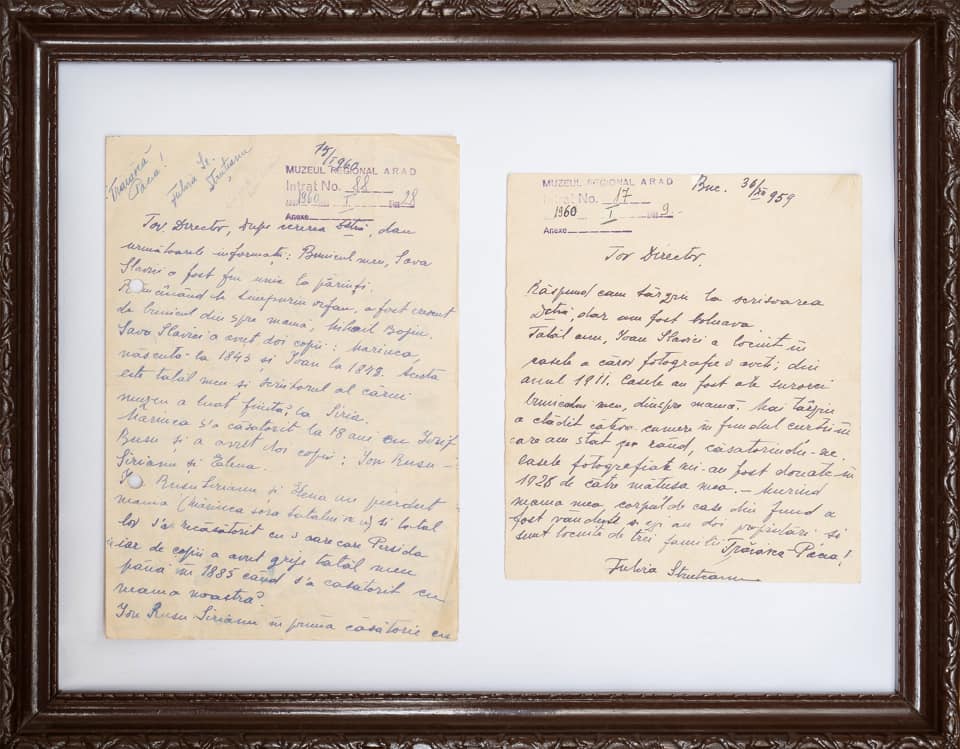 Trăiască Pacea!
Iulia Sl. Struteanu
15/I 1960
MUZEUL REGIONAL ARAD
Intrat No. 88
1960 I 28
Anexe
Tov Director, Dupe cererea Dstră, dau
următoarele informații: Bunicul meu, Sava
Slavici a fost fiu unic la părinți.
Rămânând de timpuriu orfan, a fost crescut
de bunicul din spre mamă, Mihail Boțiu.
Sava Slavici a avut doi copii: Marinca,
născută la 1843 și Ioan la 1848. Acesta
este tatăl meu și scriitorul al cărui
muzeu a luat ființă la Siria.
Mărinca s'a căsătorit la 18 ani cu Iosif
Rusu și a avut doi copii: Ion Rusu-
Sirianu și Elena.
Rusu Sirianu și Elena au pierdut
mama (Mărinca sora tatălui) și tatăl
lor s'a recăsătorit cu o oarecare Persida
iar de copii a avut grije tatăl meu
până în 1885 când s'a căsătorit cu
mama noastră.
Ion Rusu Sirianu în prima căsătorie cu
MUZEUL REGIONAL ARAD
Intrat No. 17
1960 I 9
Anexe
Buc. 30/XII 959
Tov Director.
Răspund cam târziu la scrisoarea
Dstră, dar am fost bolnavă
Tatăl meu, Ioan Slavici a locuit în
casele a căror fotografie o aveți, din
anul 1911. Casele au fost ale surorei
bunicului meu, dinspre mamă. Mai târziu
a clădit câteva camere în fundul curții în
care am stat pe rând, căsătorindu-ne.
Casele fotografiate mi-au fost donate în
1928 de către mătușa mea. - Murind
mama mea, corpul de case din fund a
fost vândut și are doi proprietari și
sunt locuite de trei familii Trăiasca Pacea!
Iulia Struteanu